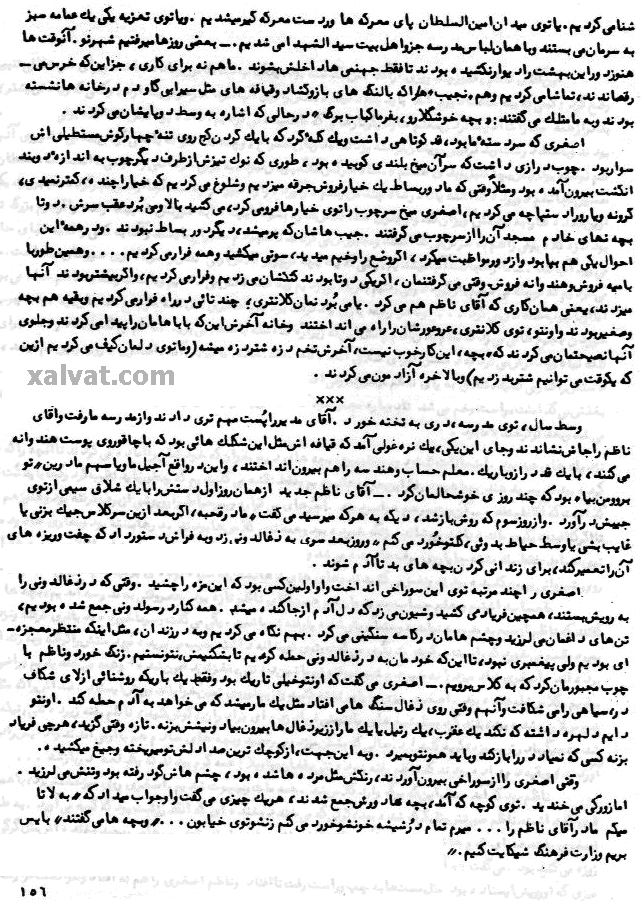 شنا می کردیم. یا توی میدان امین السلطان پای معرکه ها وردست معرکه گیر میشدیم. و یا توی تعزیه یکی یك عمامه سبز
به سرمان می بستند و با همان لباس مدرسه جزو اهل بیت سید الشهدا می شدیم. — بعضی روزها میرفتیم شهرنو. آنوقت ها
هنوز دور این بهشت را دیوار نکشیده بودند تا فقط جهنمی ها داخلش بشوند. ما هم نه برای کاری، جز این که خرس می —
رقصاندند، تماشا می کردیم و هم. نجیب هارا که با لنگ های باز و گشاد و قیافه های مثل سیرابی گاو دم درخانه ها نشسته
بودند و به ما متلك می گفتند: و بچه خوشگلارو، بفرما کباب برگ » درحالی که اشاره به وسط دوپایشان می کردند.
اصغری که سردسته ما بود، قد کوتاهی داشت ویك کله گرد که با یك گردن کج روی تنه چهارگوش مستطیلی اش
سوار بود. چوب درازی داشت که سرآن میخ بلندی کوبیده بود، طوری که نوك تیزش از طرف دیگر چوب به اندازه دو بند
انگشت بیرون آمده بود ومثلا وقتی که ما دور بساط یك خیار فروش جرقه میزدیم و شلوغ می کردیم که خیارا چنده، کمتر نمیدی،
گرونه و یارو را دستپاچه می کردیم، اصغری میخ سر چوب را توی خیارها فرو می کرد، می کشید بالا ومی بُرد عقب سرش. دوتا
بچه تنهای خادم مسجد آن را از سر چوب می گرفتند. جیب هاشان که پر میشد، دیگر دور بساط نبودند. ودر همه این
احوال یکی هم بپا بود و از دور مواظبت میکرد، اگر وضع را وخیم میدید، سوتی میکشید وهمه فرار می کردیم.... وهمین طور با
بامیه فروش وهندوانه فروش، وقتی می گرفتنمان، اگر یکی دوتا بودند کتکشان می زدیم وفرار می کردیم، واگر بیشتر بودند آنها
میزدند، یعنی همان کاری که آقای ناظم هم می کرد. یا می بُرد نمان کلانتری، چند تائی در راه فرار می کردیم وبقیه هم بچه
وصغیر بودند واونتو، توی کلانتری، عروعورشان را راه می انداختند وخانه آخرش این که باباهامان را پیدا می کردند وجلوی
آنها نصیحتمان می کردند که، بچه، این کار خوب نیست، آخرش تخم دزه شتر دزه میشه (وما توی دلمان کیف می کردیم ازین
که یکوقت می توانیم شتر بدزدیم) وبالاخره آزادمون می کردند.
xalvat.com
×××
وسط سال، توی مدرسه، دری به تخته خورد. آقای مدیر را پُست مهم تری دادند واز مدرسه ما رفت وآقای
ناظم را جاش نشاندند وجای این یکی، یك نره غولی آمد که قیافه اش مثل این شکلك هائی بود که با چاقو روی پوست هندوانه
می کنند، با یك قد دراز وباریك. معلم حساب وهندسه را هم بیرون انداختند، واین در واقع آجیل ما ویا سهم مادرین « تو
برو ومن بیا » بود که چند روزی خوشحالمان کرد. — آقای ناظم جدید از همان روز اول دستش را با یك شلاق سیمی از توی
جیبش درآورد. واز روز سوم که روش باز شد، دیگه به هر که میرسید می گفت « مادرقحبه، اگر بعد ازین سر کلاس جیك بزنی یا
غایب بشی یا وسط حیاط بدوئی، کلتو خُورد می کنم » وروز بعد سری به ذغالدونی زد وبه فراش دستور داد که چفت وریزه های
آن را تعمیر کند، برای زندانی کردن بچه های بد تا آدم شوند.
اصغری را چند مرتبه توی این سوراخی انداخت واو اولین کسی بود که این مزه را چشید. وقتی که در ذغالدونی را
به رویش بستند، همچین فریاد می کشید وشیون می زد که دل آدم از جا کنده میشد. همه کنار در سولدونی جمع شده بودیم،
تن های داغمان می لرزید وچشم هامان در کاسه سنگینی می کرد. بهم نگاه می کردیم وبه در زندان، مثل اینکه منتظر معجزه —
ای بودیم ولی پیغمبری نبود، تا این که خودمان به در ذغالدونی حمله کردیم تا بشکنیمش، نتونستیم. زنگ خورد وناظم با
چوب مجبورمان کرد که به کلاس برویم. — اصغری می گفت که اونتو خیلی تاریك بود وفقط یك باریکه روشنائی از لای شکاف
در، سیاهی را می شکافت وآنهم وقتی روی ذغال سنگ ها می افتاد مثل یك مار میشد که می خواهد به آدم حمله کند. اونتو
دایم دلهره داشته که نکند یك عقرب، یك رتیل یا یك مار از زیر ذغال ها بیرون بیاد ونیشش بزنه. تازه وقتی گزید، هرچی فریاد
بزنه کسی که نمیاد در را باز کند وباید همونتو بمیرد. وبه این جهت، از کوچك ترین صدا دلش تو میریخته وجیغ میکشیده.
وقتی اصغری را از سوراخی بیرون آوردند، رنگش مثل مرده ها شده بود، چشم هاش گود رفته بود وتنش می لرزید.
اما زورکی می خندید. توی کوچه که آمد، بچه ها دورش جمع شدند، هریك چیزی می گفت واو جواب میداد که « به لاتا
میگم مادر آقای ناظم را ... میرم تمام در شیشه خونشو خورد می کنم زنشو توی خیابون ... » وبچه ها می گفتند « بایس
بریم وزارت فرهنگ شیکایت کنیم. »
۱۵٦